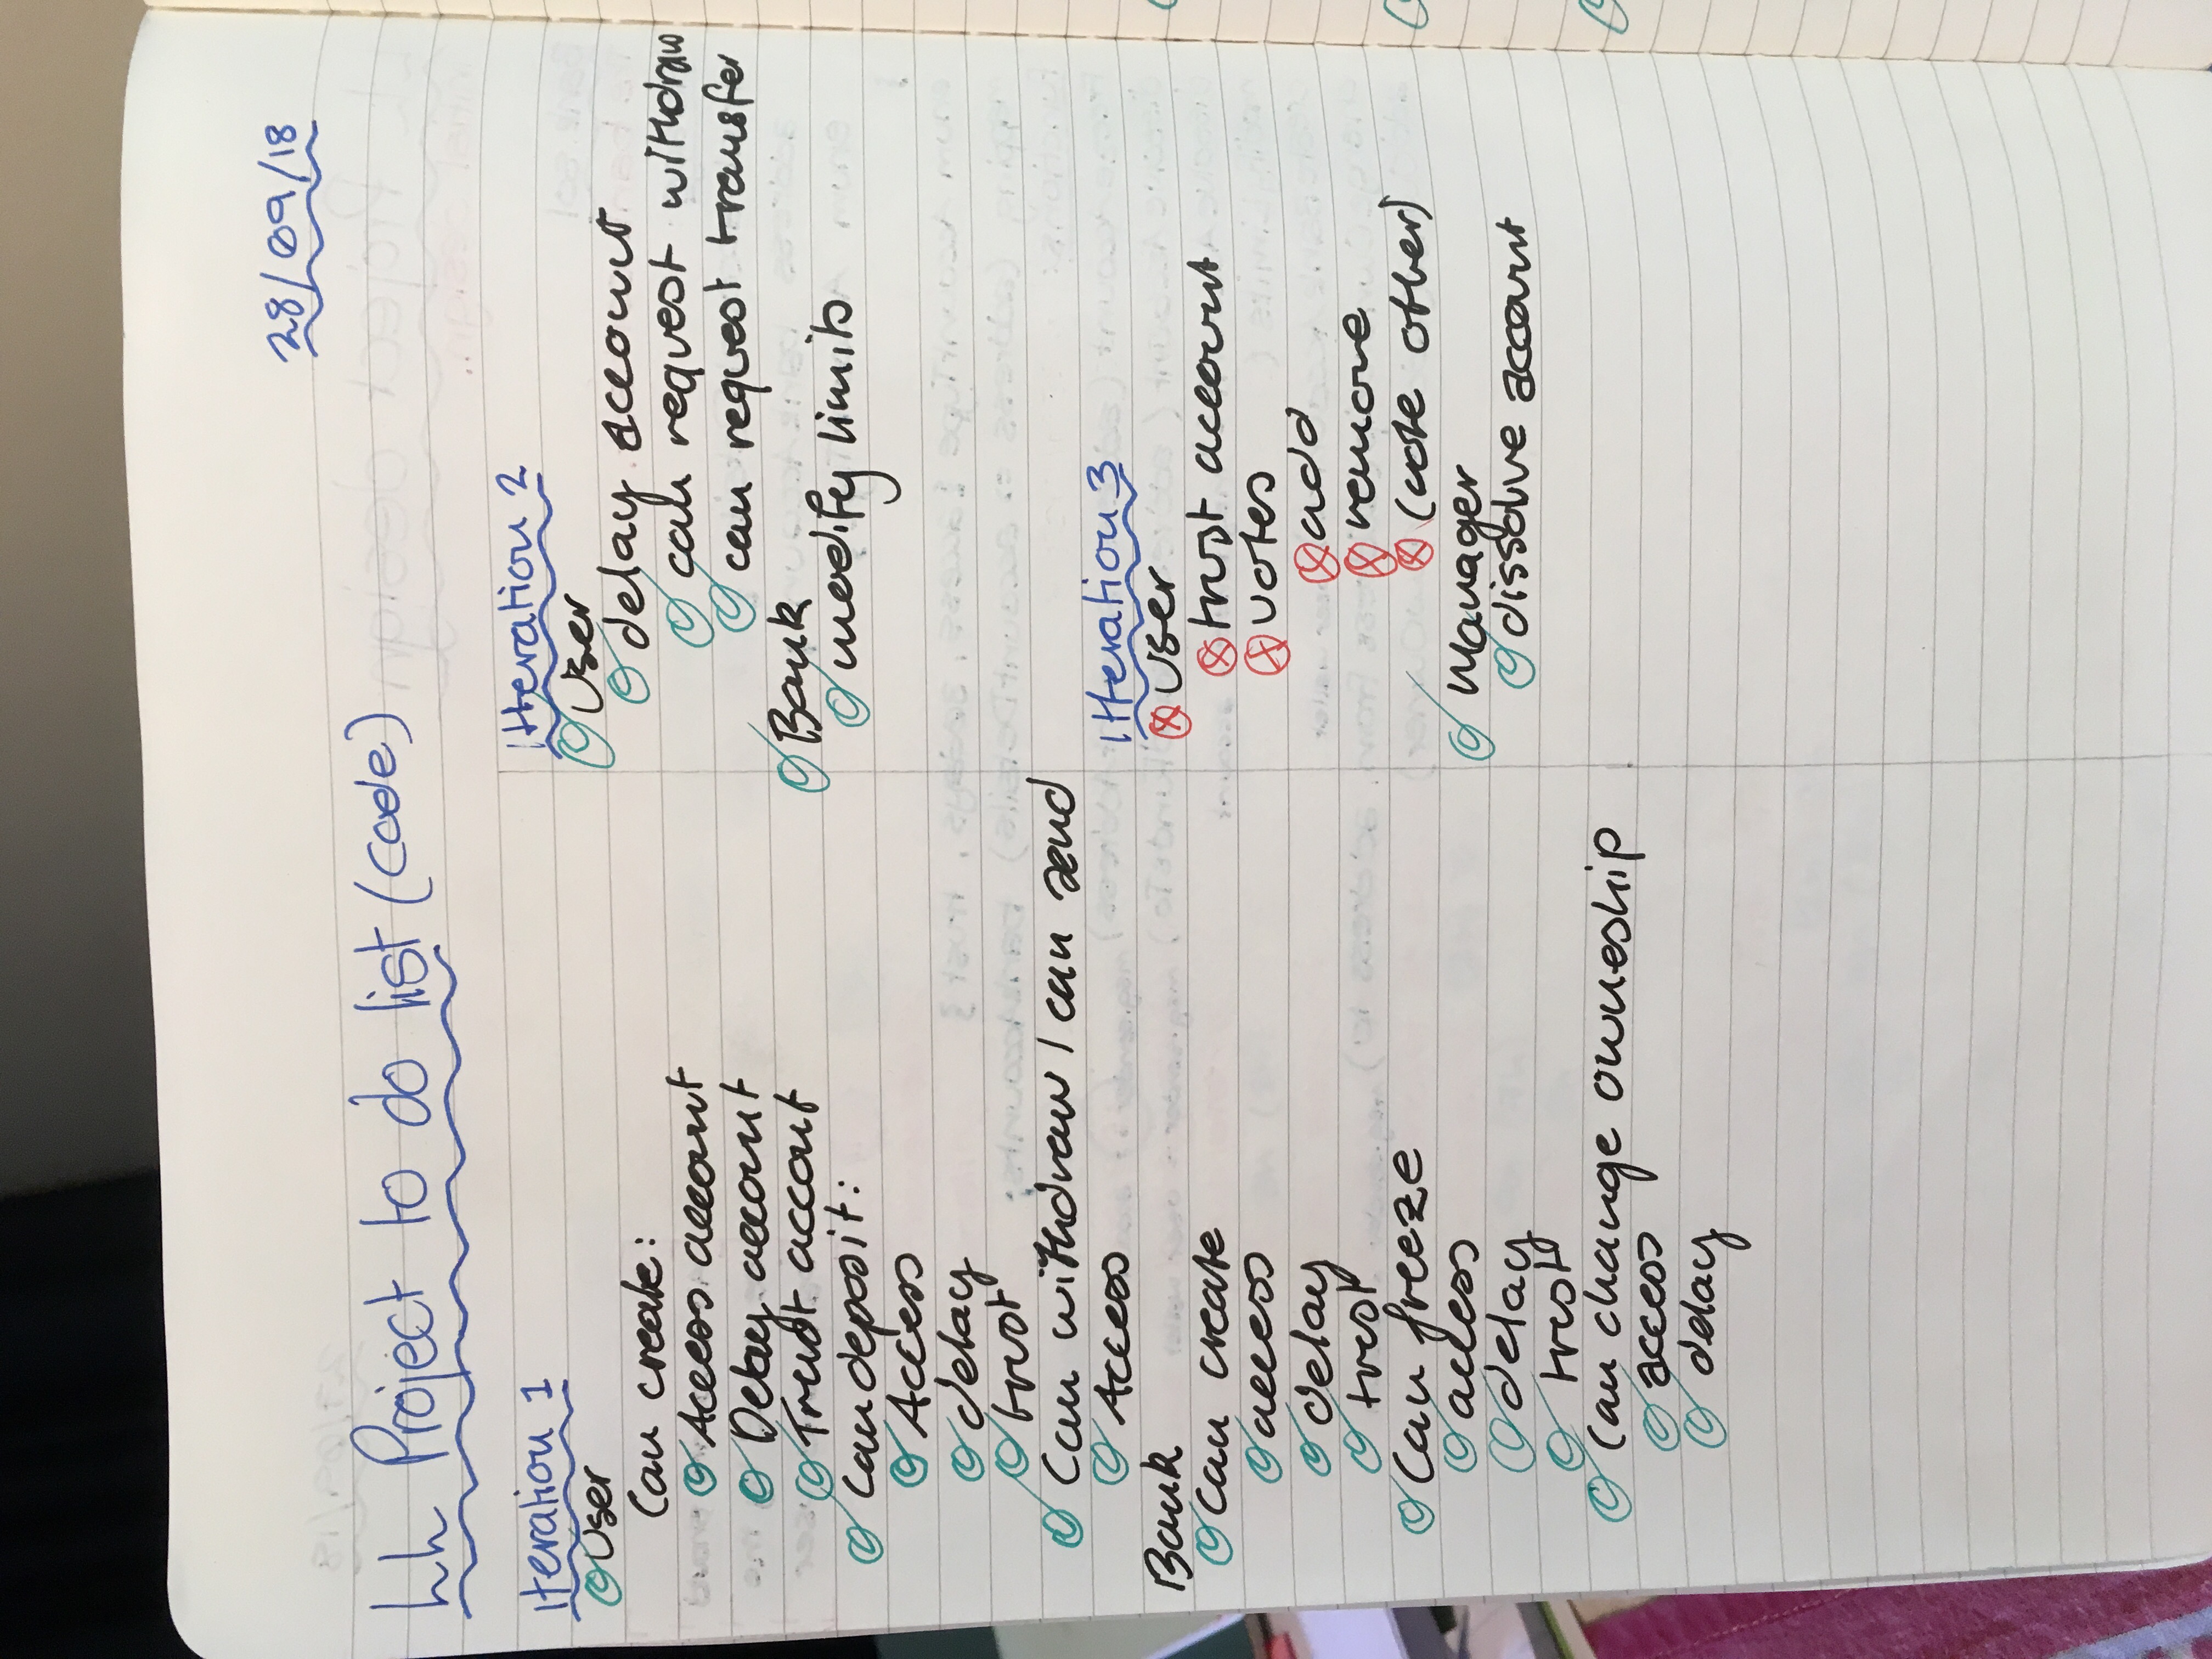 28/09/18
LL Project to do list (code)
Iteration 1
User
Can create:
Access account
Delay account
Trust accout
Can deposit:
Access
delay
trust
Can withdraw / can send
Access
Bank
Can create
access
delay
trust
Can freeze
access
delay
trust
Can change owneship
access
delay
Itteration 2
User
delay account
can request withdraw
can request transfer
Bank
modify limits
Itteration 3
User
trust account
votes
add
remove
(vote other)
Manager
dissolve account